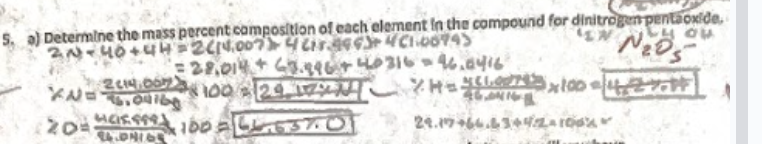 5. a) Determine the mass percent composition of each element in the compound for dinitrogen pentaoxide.
2N 4O + 4H = 2(14.007) + 4(15.999) + 4(1.0079) N2O5
= 28.014 + 63.996 + 4.0316 = 96.0416
%N = 2(14.007) x 100 = 29.17% N %H = 4(1.0079) x 100 = 4.2% H
96.0416 96.0416
%O = 4(15.999) x 100 = 66.63% O 29.17+66.63+4.2=100%
96.0416